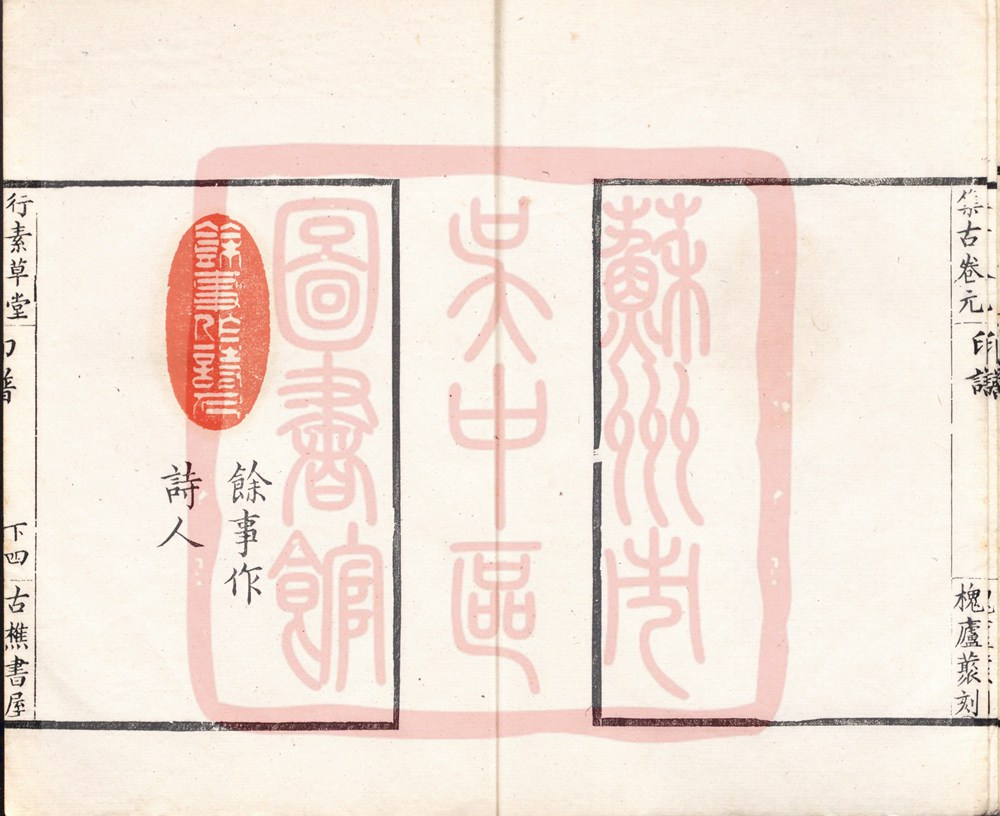 集古卷元
印譜
槐廬蒃刻
蘇州市
吳中區
圖書館
餘事作詩人
餘事作
詩人
行素草堂
印譜
下四
古樵書屋